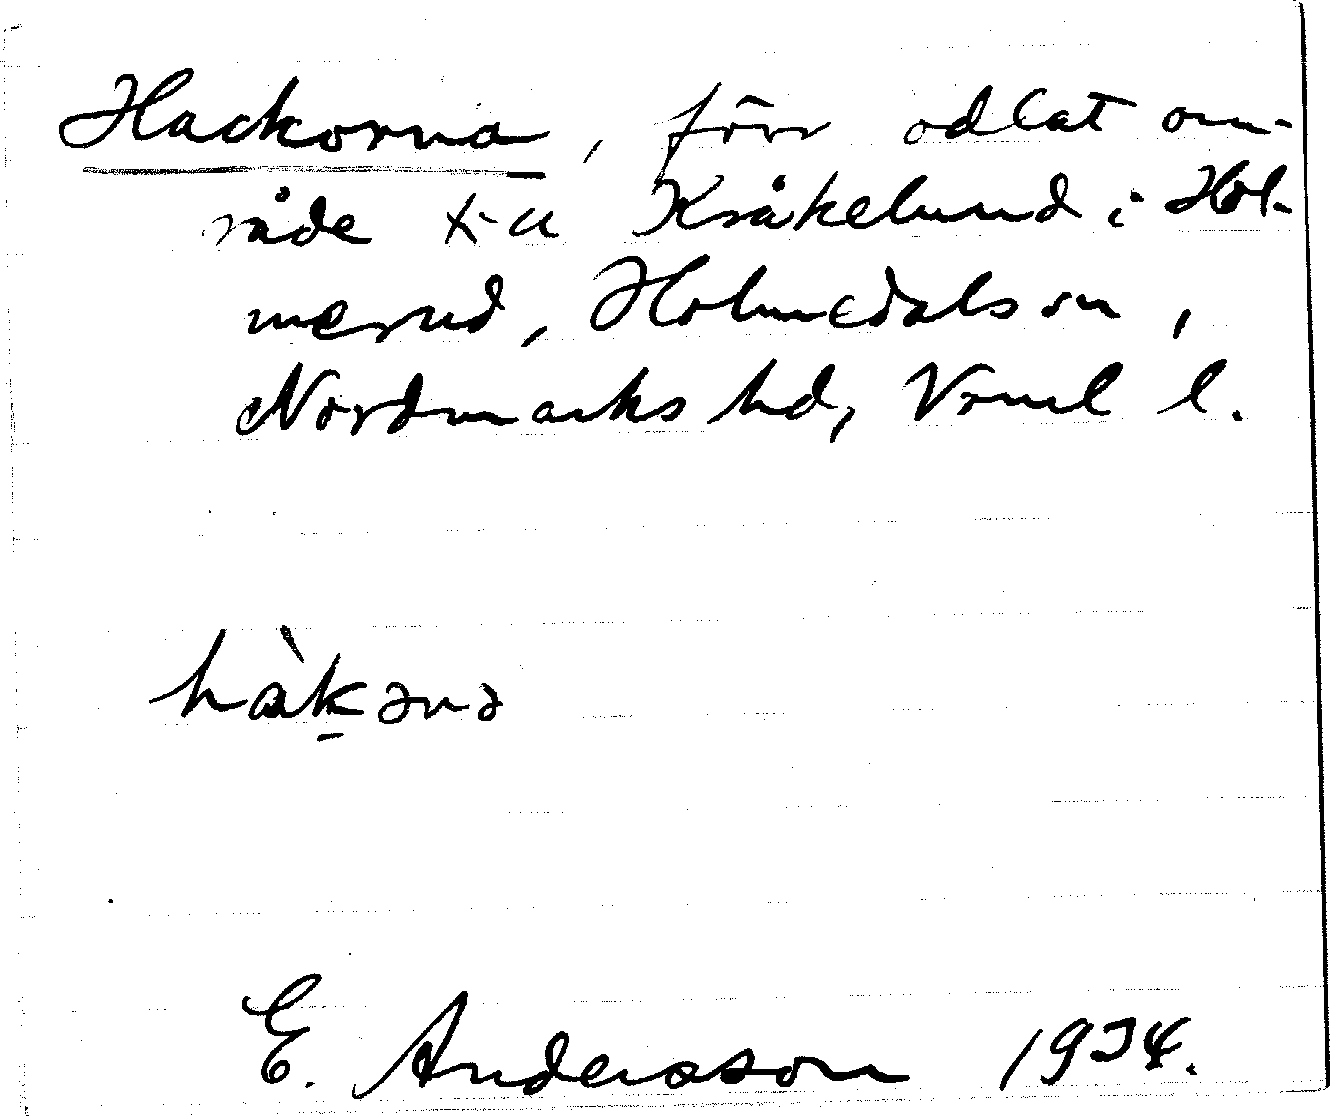 Hackorna, förr odlat om-
råde t. a Kråkelund i Hol-
merud, Holmedals sn,
Nordmarks hd, Vrml l.
hàkənə
E. Andersson 1934.